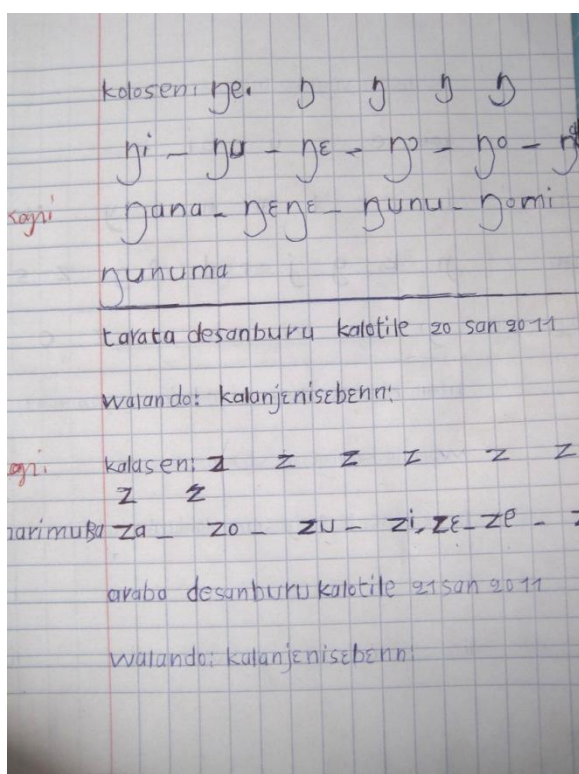 kolosen: ŋe. ŋ ŋ ŋ ŋ
ŋi – ŋu – ŋɛ – ŋɔ – ŋo –
ŋana – ŋɛŋɛ – ŋunu – ŋomi
ŋunuma
tarata desanburu kalotile 20 san 2011
walando: kalanjɛnisɛbenn:
kalasen: z z z z z z
z z
za – zo – zu – zi, zɛ – ze –
araba desanburu kalotile 21 san 2011
walando: kalanjɛnisɛbenn: